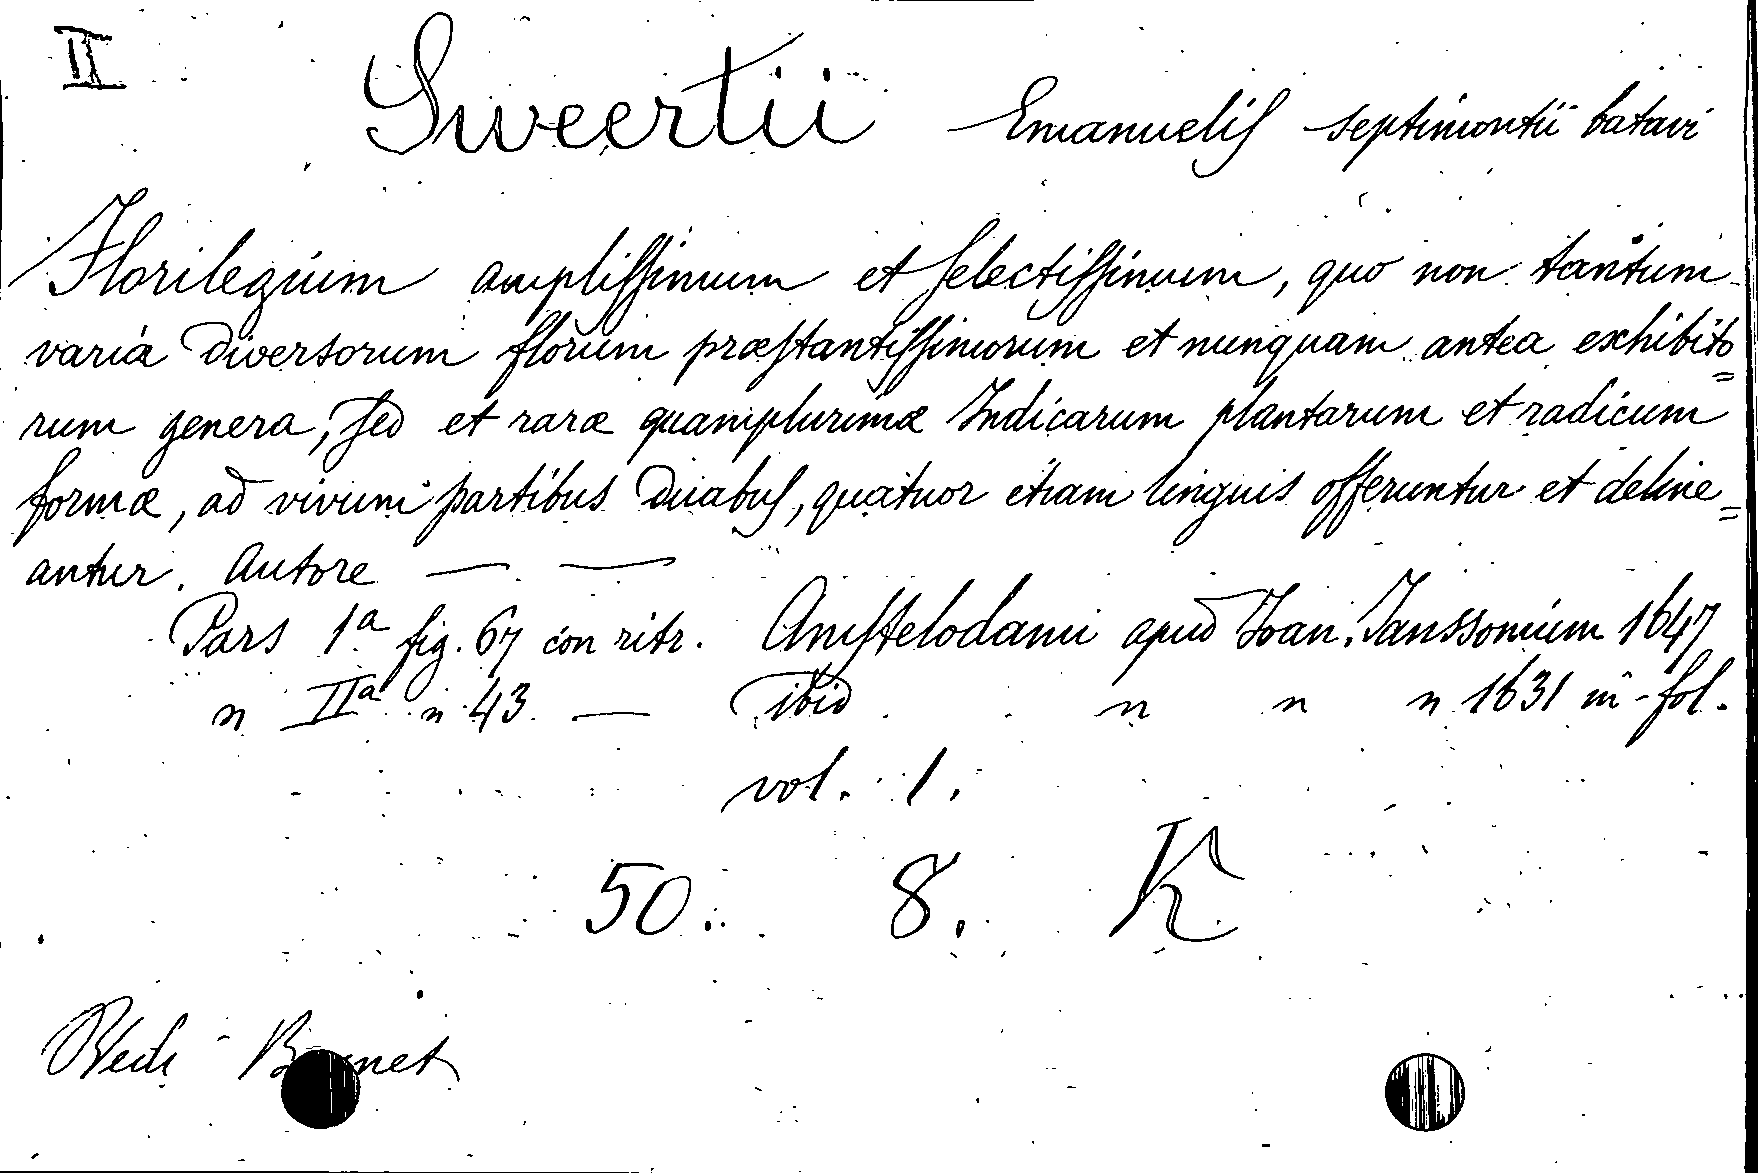 II
Sweertii Emanuelis septimontii batavi
Florilegium amplissimum et selectissimum, quo non tantum
varia diversorum florum præstantissimorum et nunquam antea exhibito=
rum genera, sed et raræ quamplurimæ Indicarum plantarum et radicum
formæ, ad vivum partibus duabus, quatuor etiam linguis offeruntur et deline=
antur. Autore — —
Pars 1ª fig. 67 con ritr. Amstelodami apud Joan. Janssonium 1647
" IIª " 43 — ibid " " " 1631 in-fol.
vol. 1.
50. 8. K